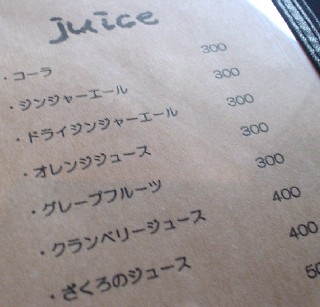 juice
・コーラ 300
・ジンジャーエール 300
・ドライジンジャーエール 300
・オレンジジュース 300
・グレープフルーツ 300
・クランベリージュース 400
・ざくろのジュース 400